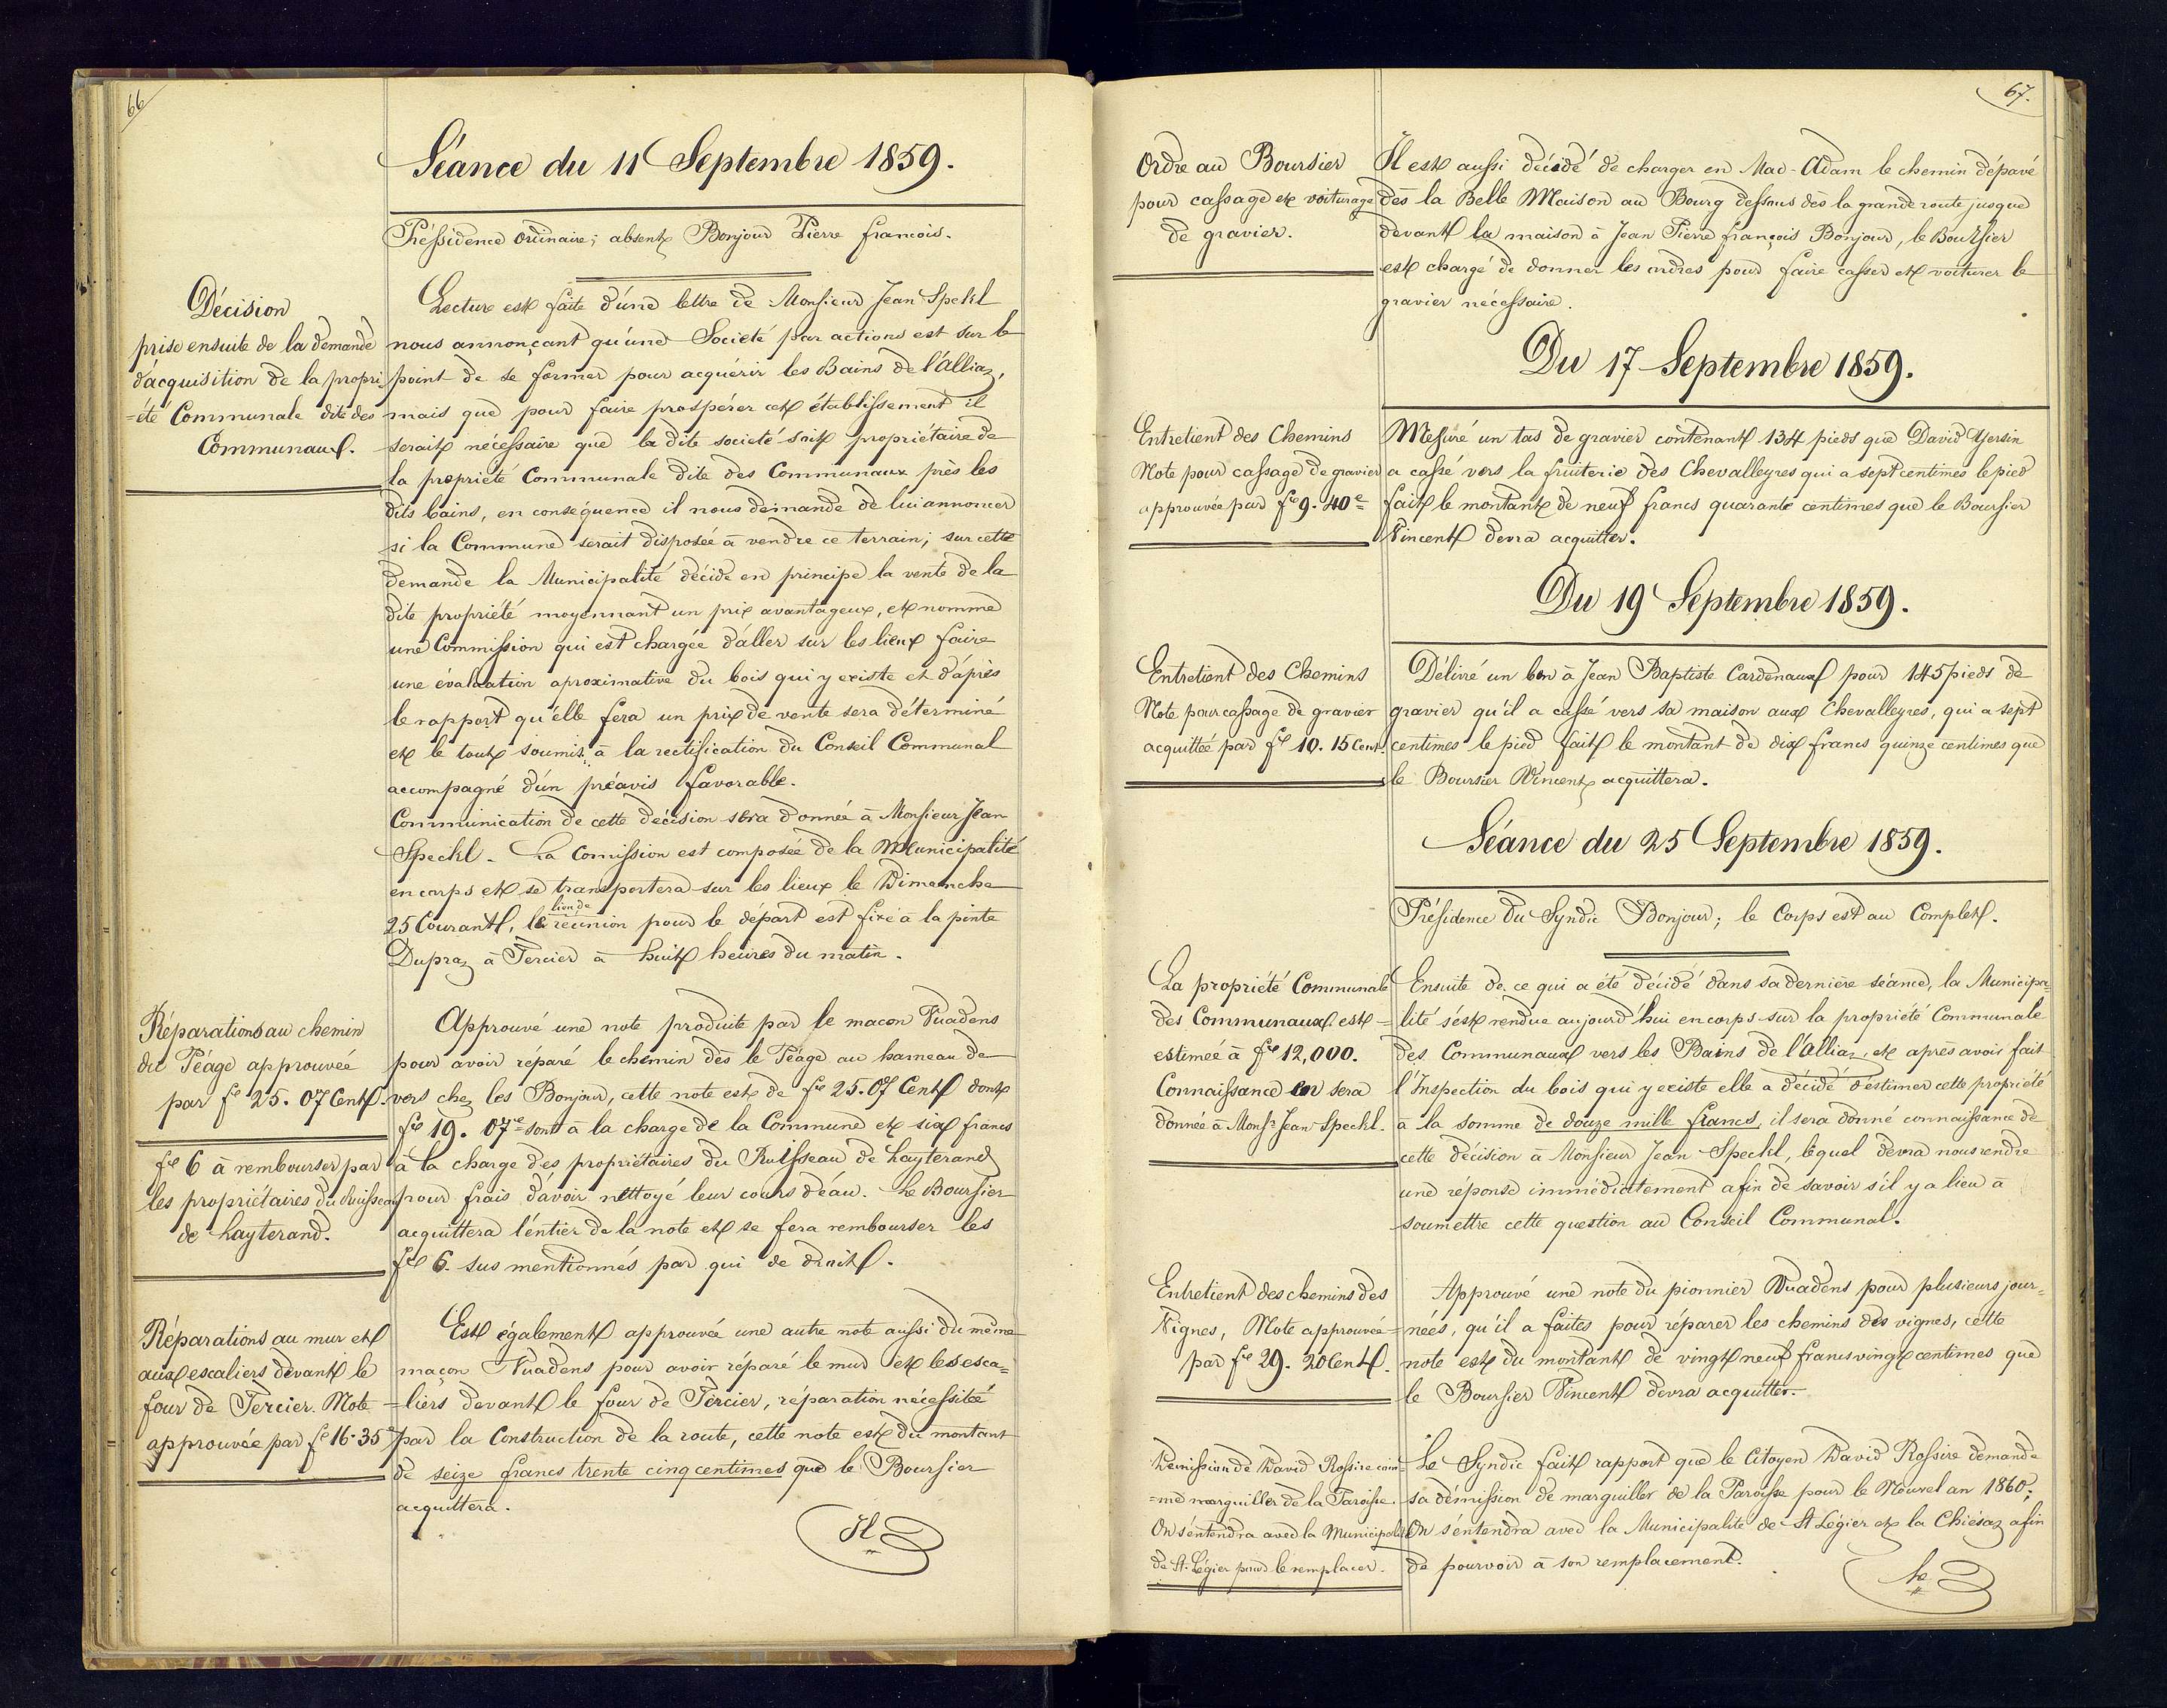 66
Séance du 11 Septembre 1859.
Préssidence ordinaire; absent Bonjour Pierre françois.
Décision
prise ensuite de la demande
d'acquisition de la propri
=été Communale dite des
Communaux.
Lecture est faite d'une lettre de Monsieur Jean Spekl
nous annonçant qu'une Société par actions est sur le
point de se former pour acquérir les Bains de l'Alliaz,
mais que pour faire prospérer cet établissement il
serait nécessaire que la dite societé soit propriétaire de
la propriété Communale dite des Communaux près les
dits bains, en conséquence il nous demande de lui annoncer
si la Commune serait disposée à vendre ce terrain; sur cette
demande la Municipalité décide en principe la vente de la
dite propriété moyennant un prix avantageux, et nomme
une Commission qui est chargée d'aller sur les lieux faire
une évaluation aproximative du bois qui y existe et d'après
le rapport qu'elle fera un prix de vente sera déterminé
et le tout soumis à la rectification du Conseil Communal
accompagné d'un préavis favorable.
Communication de cette décision sera donnée à Monsieur Jean
Speckl. La Comission est composée de la Municipalité
en corps et se transportera sur les lieux le Dimanche
25 Courant, le lieu de réunion pour le départ est fixé à la pinte
Dupraz à Tercier à huit heures du matin.
Réparations au chemin
du Péage approuvée
par fcs 25. 07 Cent.
fcs 6 à rembourser par
les propriétaires du Ruisseau
de Layterand.
Approuvé une note produite par le macon Vuadens
pour avoir réparé le chemin dès le Péage au hameau de
vers chez les Bonjour, cette note est de fcs 25. 07 Cent dont
fcs 19. 07ce sont à la charge de la Commune et six francs
à la charge des propriétaires du Ruisseau de Layterand
pour frais d'avoir nettoyé leur cours d'éau. Le Boursier
acquittera l'entier de la note et se fera rembourser les
fcs 6. sus mentionnés par qui de droit.
Réparations au mur et
aux escaliers devant le
four de Tercier. Note
approuvée par fcs 16.35
Est également approuvée une autre note aussi du même
maçon Vuadens pour avoir réparé le mur et les esca=
=liers devant le four de Tercier, réparation nécessitée
par la Construction de la route, cette note est du montant
de seize francs trente cinq centimes que le Boursier
acquittera.
Il
67.
Ordre au Boursier
pour cassage et voiturage
de gravier.
Il est aussi décidé de charger en Mac-Adam le chemin dépavé
dès la Belle Maison au Bourg dessous dès la grande route jusque
devant la maison à Jean Pierre françois Bonjour, le Boursier
est chargé de donner les ordres pour faire casser et voiturer le
gravier nécessaire.
Du 17 Septembre 1859.
Entretient des Chemins
Note pour cassage de gravier
approuvée par fcs 9. 40ce
Mesuré un tas de gravier contenant 134 pieds que David Yersin
a cassé vers la fruiterie des Chevalleyres qui a sept centimes le pied
fait le montant de neuf francs quarante centimes que le Boursier
Vincent devra acquitter.
Du 19 Septembre 1859.
Entretient des Chemins
Note pour cassage de gravier
acquittée par fcs 10. 15 Cent.
Délivré un bon à Jean Baptiste Cardenaux pour 145 pieds de
gravier qu'il a cassé vers sa maison aux Chevalleyres, qui a sept
centimes le pied fait le montant de dix francs quinze centimes que
le Boursier Vincent acquittera.
Séance du 25 Septembre 1859.
Présidence du Syndic Bonjour; le Corps est au Complet.
La propriété Communale
des Communaux est
estimée à fcs 12,000.
Connaissance en sera
donnée à Monsr Jean Speckl.
Ensuite de ce qui a été décidé dans sa dernière séance, la Municipa=
=lité s'est rendue aujourd'hui en corps sur la propriété Communale
des Communaux vers les Bains de l'Alliaz, et après avoir fait
l'Inspection du bois qui y existe elle a décidé d'estimer cette propriété
à la somme de douze mille francs, il sera donné connaissance de
cette décision à Monsieur Jean Speckl, lequel devra nous rendre
une réponse immédiatement afin de savoir s'il y a lieu à
soumettre cette question au Conseil Communal.
Entretient des chemins des
Vignes, Note approuvée
par fcs 29. 20 Cent.
Approuvé une note du pionnier Vuadens pour plusieurs jour=
=nées, qu'il a faites pour réparer les chemins des vignes, cette
note est du montant de vingt neuf francs vingt centimes que
le Boursier Vincent devra acquitter.
Demission de David Rossire com=
=me marguiller de la Paroisse.
On s'entendra avec la Municipalité
de St. Légier pour le remplacer.
Le Syndic fait rapport que le Citoyen David Rossire demande
sa démission de marguiller de la Paroisse pour le Nouvel an 1860;
On s'entendra avec la Municipalité de St Légier et la Chiésaz afin
de pourvoir à son remplacement.
Le